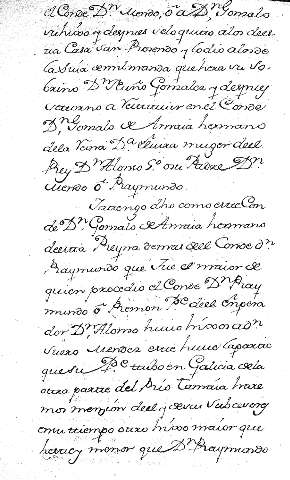 el Conde Dn. Mendo, ô a Dn. Gonsalo
su hijo y despues se lo quito al or de es
ta Cassa San Rosendo y lo dio al or de
la suia de su manda que hera su So-
brino Dn. Nuño Gonsales y despues
se tourno a Veuuiuir en el Conde
Dn. Gonsalo de Amaia hermano
de la Reina Da. eluira muger de el
Rey Dn. Alonso 5o. o su Padre Dn.
Mendo ô Raymundo.
Ia tengo dho como este Con
de Dn. Gonsalo de Amaia hermano
de esta Reyna demas de el Conde Dn.
Raymundo que fue el maior de
quien procedio el Conde Dn. Ray
mundo ô Remon Pe. de el Enpera
dor Dn. Alonso huuo hixo a Dn.
Suero Mendez este huuo la parte
que su Pe. tubo en Galicia de la
otra parte del Rio Tamaia hare
mos mension de el y de sus Subcesores
en su tiempo otro hixo maior que
este y menor que Dn. Raymundo